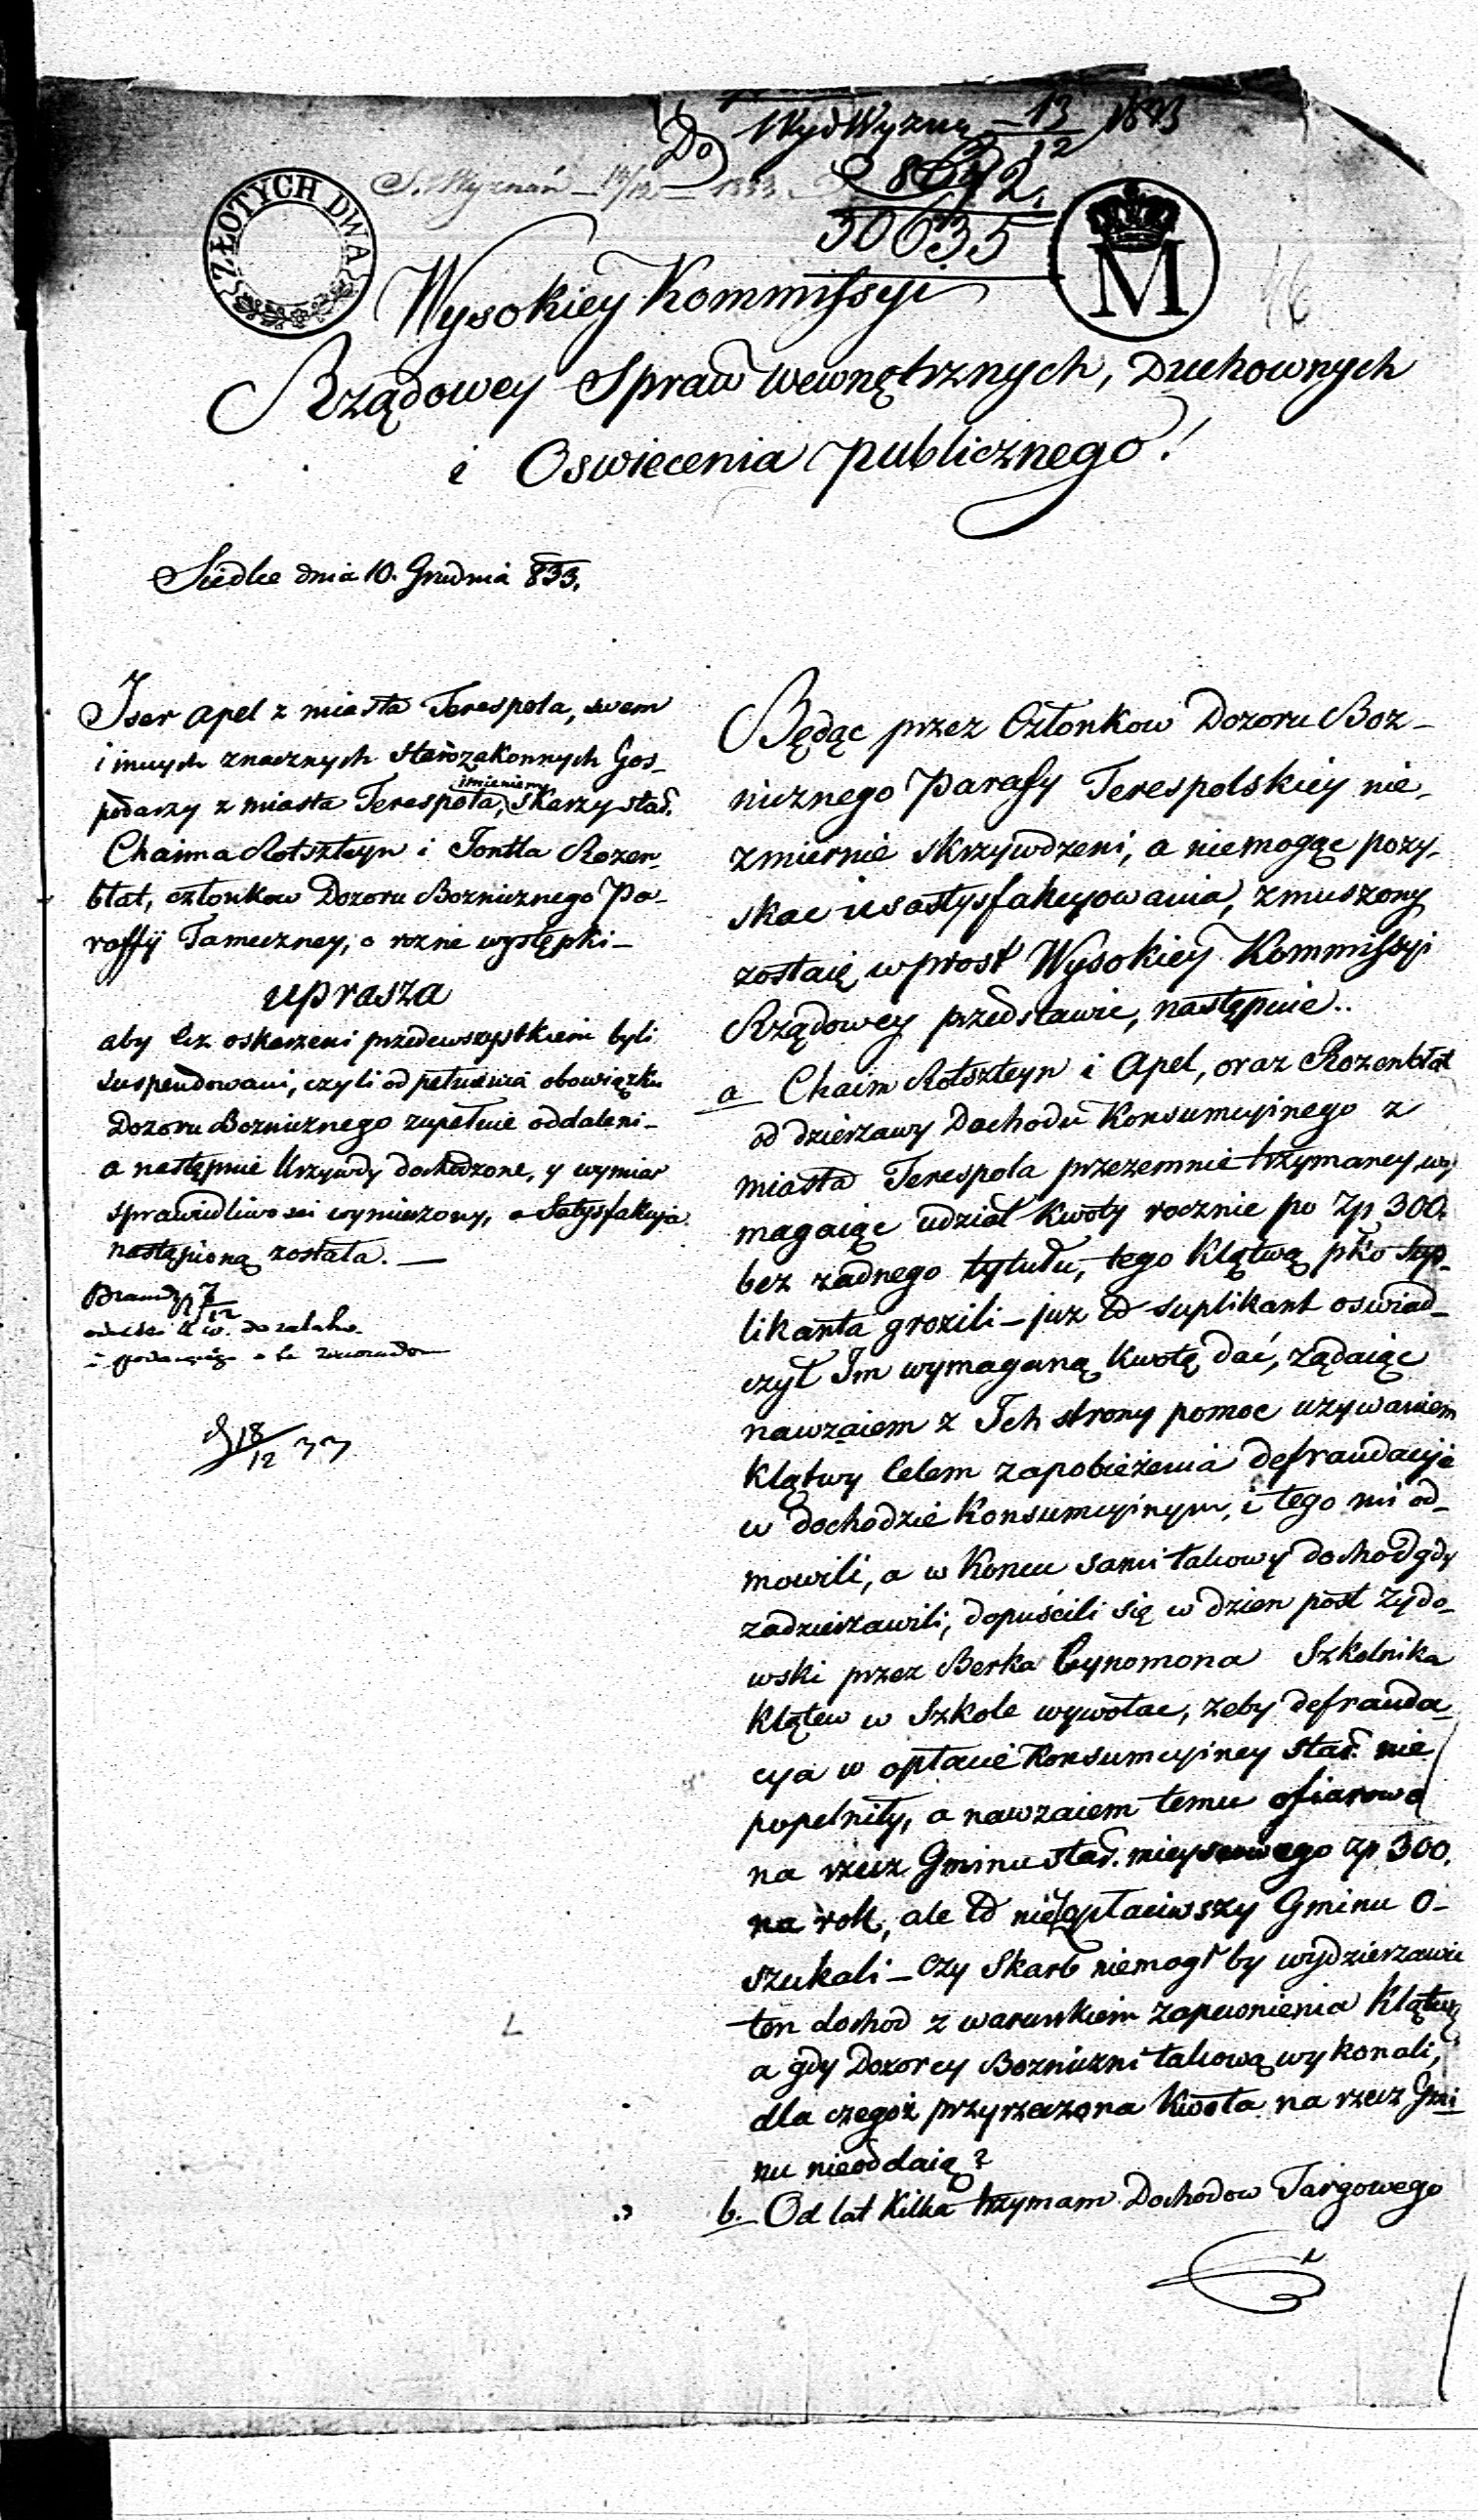 Do Wyd Wyznę 13/12 1833
S. Wyznań 13/12 1833
30635
ZŁOTYCH DWA
M
Wysokiey Kommissyi
Rządowey Spraw wewnętrznych, Duchownych
i Oswiecenia publicznego!
Siedlce dnia 10. Grudnia 833.
Iser Apel z miasta Terespola, swem
i innych znacznych starozakonnych Gos-
podarzy z miasta Terespola, imieniem skarzy staż.
Chaima Rotszteyn i Jontla Rozen-
blat, członkow Dozoru Boznicznego Pa-
raffij Tameczney, o rozne występki -
uprasza
aby ciz oskarzeni przedewszystkiem byli
suspendowani, czyli od pełnienia obowiązku
Dozoru Boznicznego zupełnie oddaleni -
a następnie krzywdy dochodzone, y wymiar
sprawiedliwosci wymierzony, a Satysfakcja
nastąpioną została. -
18/12 33
Będąc przez Członkow Dozoru Boz-
nicznego Parafy Terespolskiey nie-
zmiernie skrzywdzeni, a niemogąc pozy-
skac usastysfakcyowania, zmuszony
zostaię wprost Wysokiey Kommissyi
Rządowey przedstawic, następnie..
a Chaim Rotszteyn i Apel, oraz Rozenblat
od dzierzawy Dochodu Konsumcyinego z
miasta Terespola przezemnie trzymaney, wy
magaiąc udział kwoty rocznie po Zp 300.
bez zadnego tytułu, tego klątwą pko Sup-
likanta grozili - juz to suplikant oswiad-
czył Im wymaganą kwotę dać, żądaiąc
nawzaiem z Ich strony pomoc uzywaniem
klątwy celem zapobieżenia defraudacyje
w dochodzie Konsumcyinym, i tego mi od-
mowili, a w koncu sami takowy dochod gdy
zadzierzawili, dopuścili się w dzien post Zydo-
wski przez Berka Cynomona Szkolnika
klątew w Szkole wywołac, zeby defrauda-
cya w opłacie Konsumcyiney staż. nie
popełniły, a nawzaiem temu ofiarowa
na rzecz Gminu staż. mieyscowego Zp 300.
na rok, ale to niezapłaciwszy Gminu o-
szukali - czy Skarb niemogł by wydzierzawic
ten dochod z warunkiem zapewnienia klątwy
a gdy Dozorcy Bozniczni takową wykonali,
dla czegoż przyrzeczona kwota na rzecz Gmi
nu nieoddaią?
b. Od lat kilka trzymam Dochodow Targowego